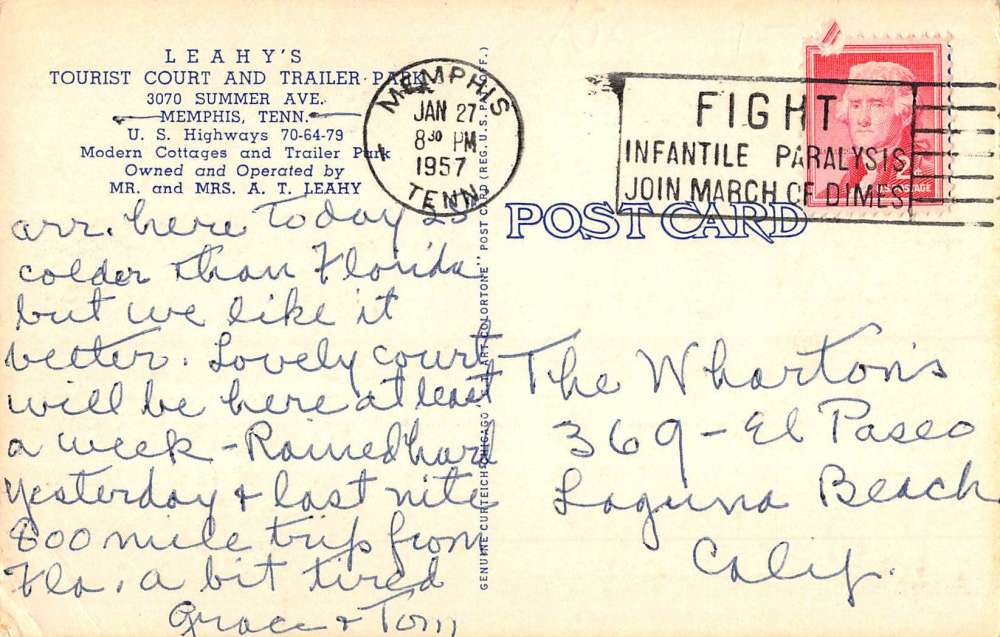 LEAHY'S
TOURIST COURT AND TRAILER PARK
3070 SUMMER AVE.
MEMPHIS, TENN.
U. S. Highways 70-64-79
Modern Cottages and Trailer Park
Owned and Operated by
MR. and MRS. A. T. LEAHY
arr. here today
colder than Florida
but we like it
better. Lovely court
will be here at least
a week - Rained hard
yesterday & last nite
800 mile trip from
Fla. a bit tired
Grace & Tom
GENUINE CURTEICH-CHICAGO "C.T. ART-COLORTONE" POST CARD (REG. U.S. PAT. OFF.)
MEMPHIS
JAN 27
8 30 PM
1957
TENN.
FIGHT
INFANTILE PARALYSIS
JOIN MARCH OF DIMES
2¢
U.S. POSTAGE
POST CARD
The Wharton's
369 - El Paseo
Laguna Beach
Calif.